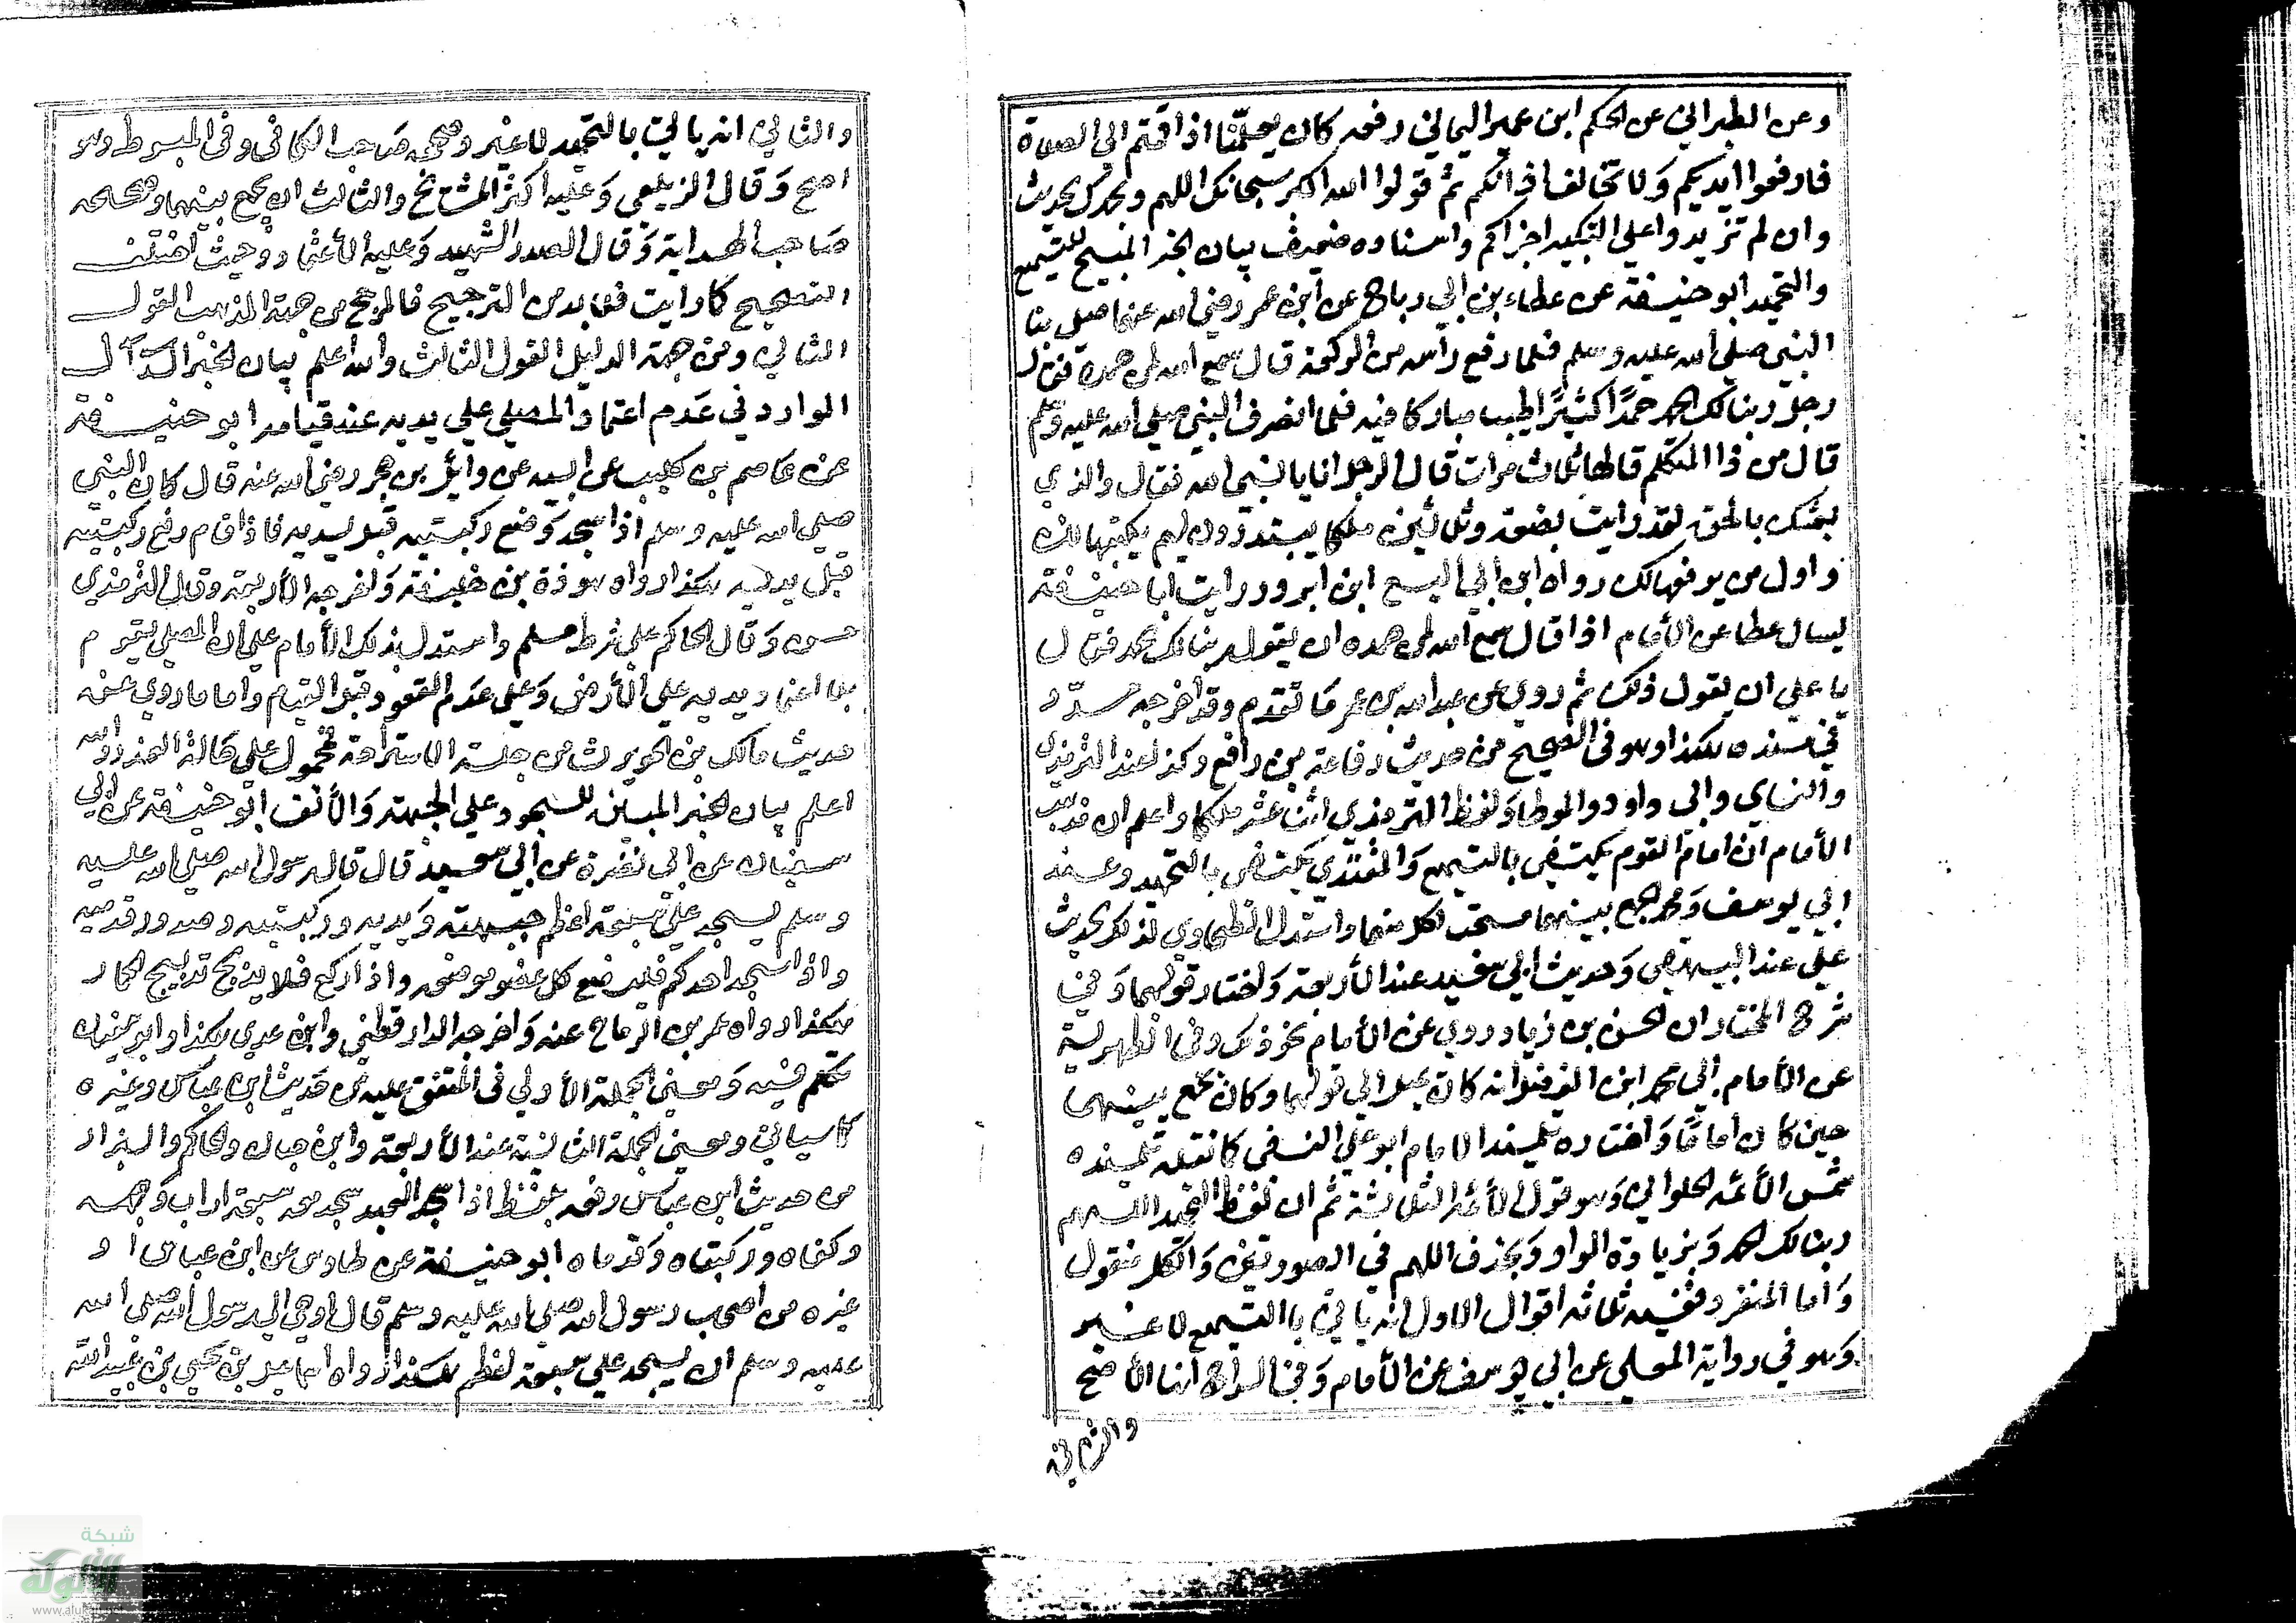 وعن الطبراني عن الحكم ابن عمير اليماني رفعه كان يعلمنا اذا قمتم الي الصلاة
فارفعوا ايديكم ولا تخالف اذانكم ثم قولوا الله اكبر سبحانك اللهم وبحمدك الحديث
وان لم تزيدوا علي التكبير اجزاكم واسناده ضعيف بيان الخبر المبيح للتسميع
والتحميد ابو حنيفة عن عطاء بن ابي رباح عن ابن عمر رضي الله عنهما صلي بنا
النبي صلي الله عليه وسلم فلما رفع راسه من الركعة قال سمع الله لمن حمده فقال
رجل ربنا لك الحمد حمدًا كثيرًا طيب مباركا فيه فلما انصرف النبي صلي الله عليه وسلم
قال من ذا المتكلم قالها ثلاث مرات قال الرجل انا يا نبي الله فقال والذي
بعثك بالحق لقد رايت بضعة وثلاثين ملكا يبتدرون ايهم يكتبها لك
واول من يرفعها لك رواه ابن ابي السبع ابن ابرود رايت ابا حنيفة
يسال عطا عن الأمام اذا قال سمع الله لمن حمده ان يقول ربنا لك الحمد فقال
ما علي ان يقول ذلك ثم روي عن عبد الله بن عمر ما تقدم وقد اخرجه مسدد
في مسنده هكذا وهو في الصحيح من حديث رفاعة بن رافع وكذا عند الترمذي
والنساي وابي داود والموطا ولفظ الترمذي اثنا عشر ملكا واعلم ان مذهب
الأمام ان امام القوم يكتفي بالتسميع والمقتدي يكتفي بالتحميد وعند
ابي يوسف ومحمد الجمع بينهما مستحب لكل منهما واستدل الطحاوي لذلك بحديث
علي عند البيهقي وحديث ابي سعيد عند الأربعة واختار قولهما وفي
شرح المختار ان الحسن بن زياد روي عن الأمام نحو ذلك وفي الظهيرية
عن الأمام ابي محمد ابن الفضل انه كان يميل الي قولهما وكان يجمع بينهما
حين كان امامًا واختاره تلميذ الامام ابو علي النسفي كما نقله تلميذه
شمس الأئمه الحلواني وهو قول الأئمه الثلاثة ثم ان لفظ التحميد اللهم
ربنا لك الحمد وبزيادة الواو وبحذف اللهم في الصورتين والكل منقول
واما المنفرد ففيه ثلاثه اقوال الاول انه ياتي باالتسميع لا غير
وهو في رواية المعلي عن ابي يوسف عن الأمام وفي السراج انها الأصح
والثاني
والثاني انه ياتي بالتحميد لا غير وصححه صاحب الكافي وفي المبسوط وهو
اصح وقال الزيلعي وعليه اكثر المشايخ والثالث ان يجمع بينهما وصححه
صاحب الهداية وقال الصدر الشهيد وعليه الأعتماد وحيث اختلف
التصحيح كما رايت فلا بد من الترجيح فالمرجح من جهة المذهب القول
الثاني ومن جهة الدليل القول الثالث والله اعلم بيان الخبر الدال
الوارد في عدم اعتماد المصلي علي يديه عند قيامه ابو حنيفة
عن عاصم بن كليب عن ابيه عن وائل بن حجر رضي الله عنه قال كان النبي
صلي الله عليه وسلم اذا سجد وضع ركبتيه قبل يديه فاذا قام رفع ركبتيه
قبل يديه هكذا رواه هوذة بن خليفة واخرجه الأربعة وقال الترمذي
حسن وقال الحاكم علي شرط مسلم واستدل بذلك الأمام علي ان المصلي يقوم
بلا اعتماد يديه علي الأرض وعلي عدم القعود قبل القيام واما ما روي عن
حديث مالك بن الحويرث من جلسة الاستراحة محمول علي حالة العذر والله
اعلم بيان الخبر المبين للسجود علي الجبهة والأنف ابو حنيفة عن ابي
سفيان عن ابي نضرة عن ابي سعيد قال قال رسول الله صلي الله عليه
وسلم يسجد علي سبعة اعظم جبهته ويديه وركبتيه وصدور قدميه
واذا سجد احدكم فليضع كل عضو موضعه واذا ركع فلا يدبح تدبيح الحمار
هكذا رواه عمر بن الرماح عنه واخرجه الدارقطني وابن عدي هكذا وابو سفيان
تكلم فيه ومعني الجملة الأولي في المتفق عليه من حديث ابن عباس وغيره
كما سياتي ومعني الجملة الثانية عند الأربعة وابن حبان والحاكم والبزار
من حديث ابن عباس رفعه بلفظ اذا سجد العبد سجد معه سبعة اراب وجهه
وكفاه وركبتاه وقدماه ابو حنيفة عن طاوس عن ابن عباس او
غيره من اصحاب رسول الله صلي الله عليه وسلم قال اوحي الي رسول الله صلي الله
عليه وسلم ان يسجد علي سبعة اعظم هكذا رواه اسماعيل بن يحيي بن عبيد الله
شبكة
الألوكة